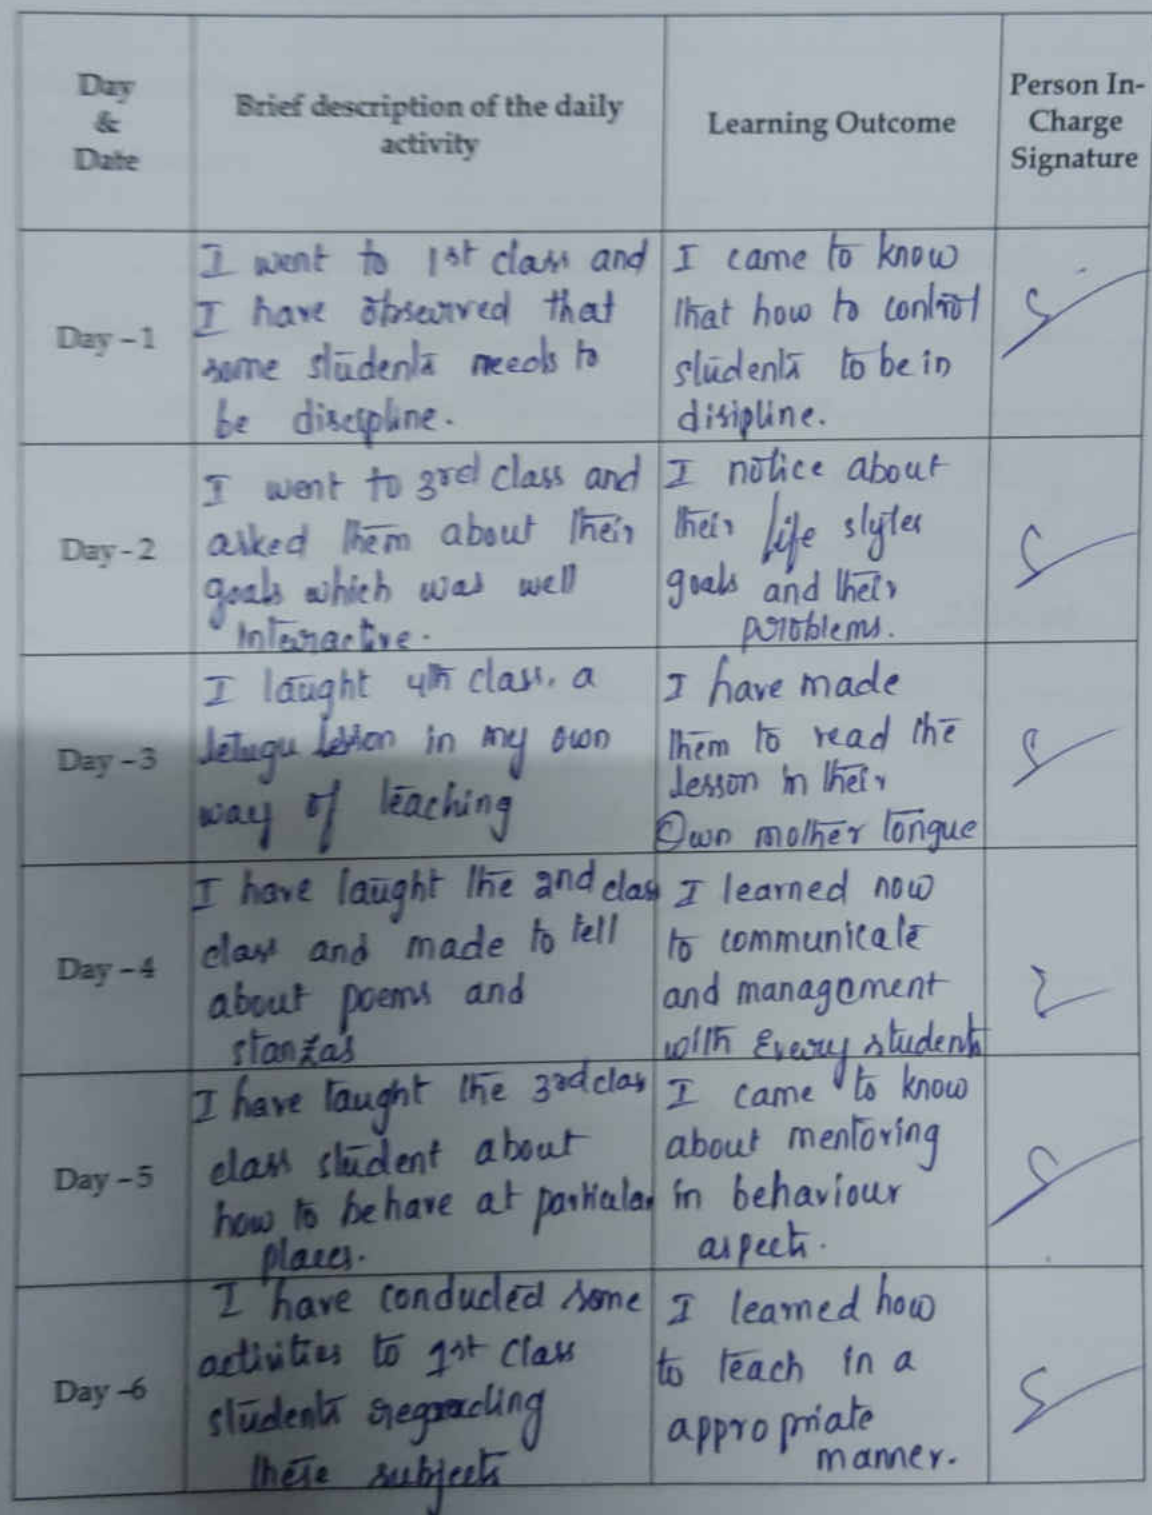 Day
&
Date
Brief description of the daily
activity
Learning Outcome
Person In-
Charge
Signature
Day - 1
I went to 1st class and
I have observed that
some students needs to
be discipline.
I came to know
that how to control
students to be in
disipline.
Day - 2
I went to 3rd class and
asked them about their
goals which was well
interactive.
I notice about
their life styles
goals and their
problems.
Day - 3
I taught 4th class, a
telugu lesson in my own
way of teaching
I have made
them to read the
lesson in their
Own mother tongue
Day - 4
I have taught the 2nd class
class and made to tell
about poems and
stanzas
I learned how
to communicate
and management
with Every students
Day - 5
I have taught the 3rd clas
class student about
how to behave at particular
places.
I came to know
about mentoring
in behaviour
aspects.
Day -6
I have conducted some
activities to 1st class
students regracling
these subjects
I learned how
to teach in a
appropriate
manner.